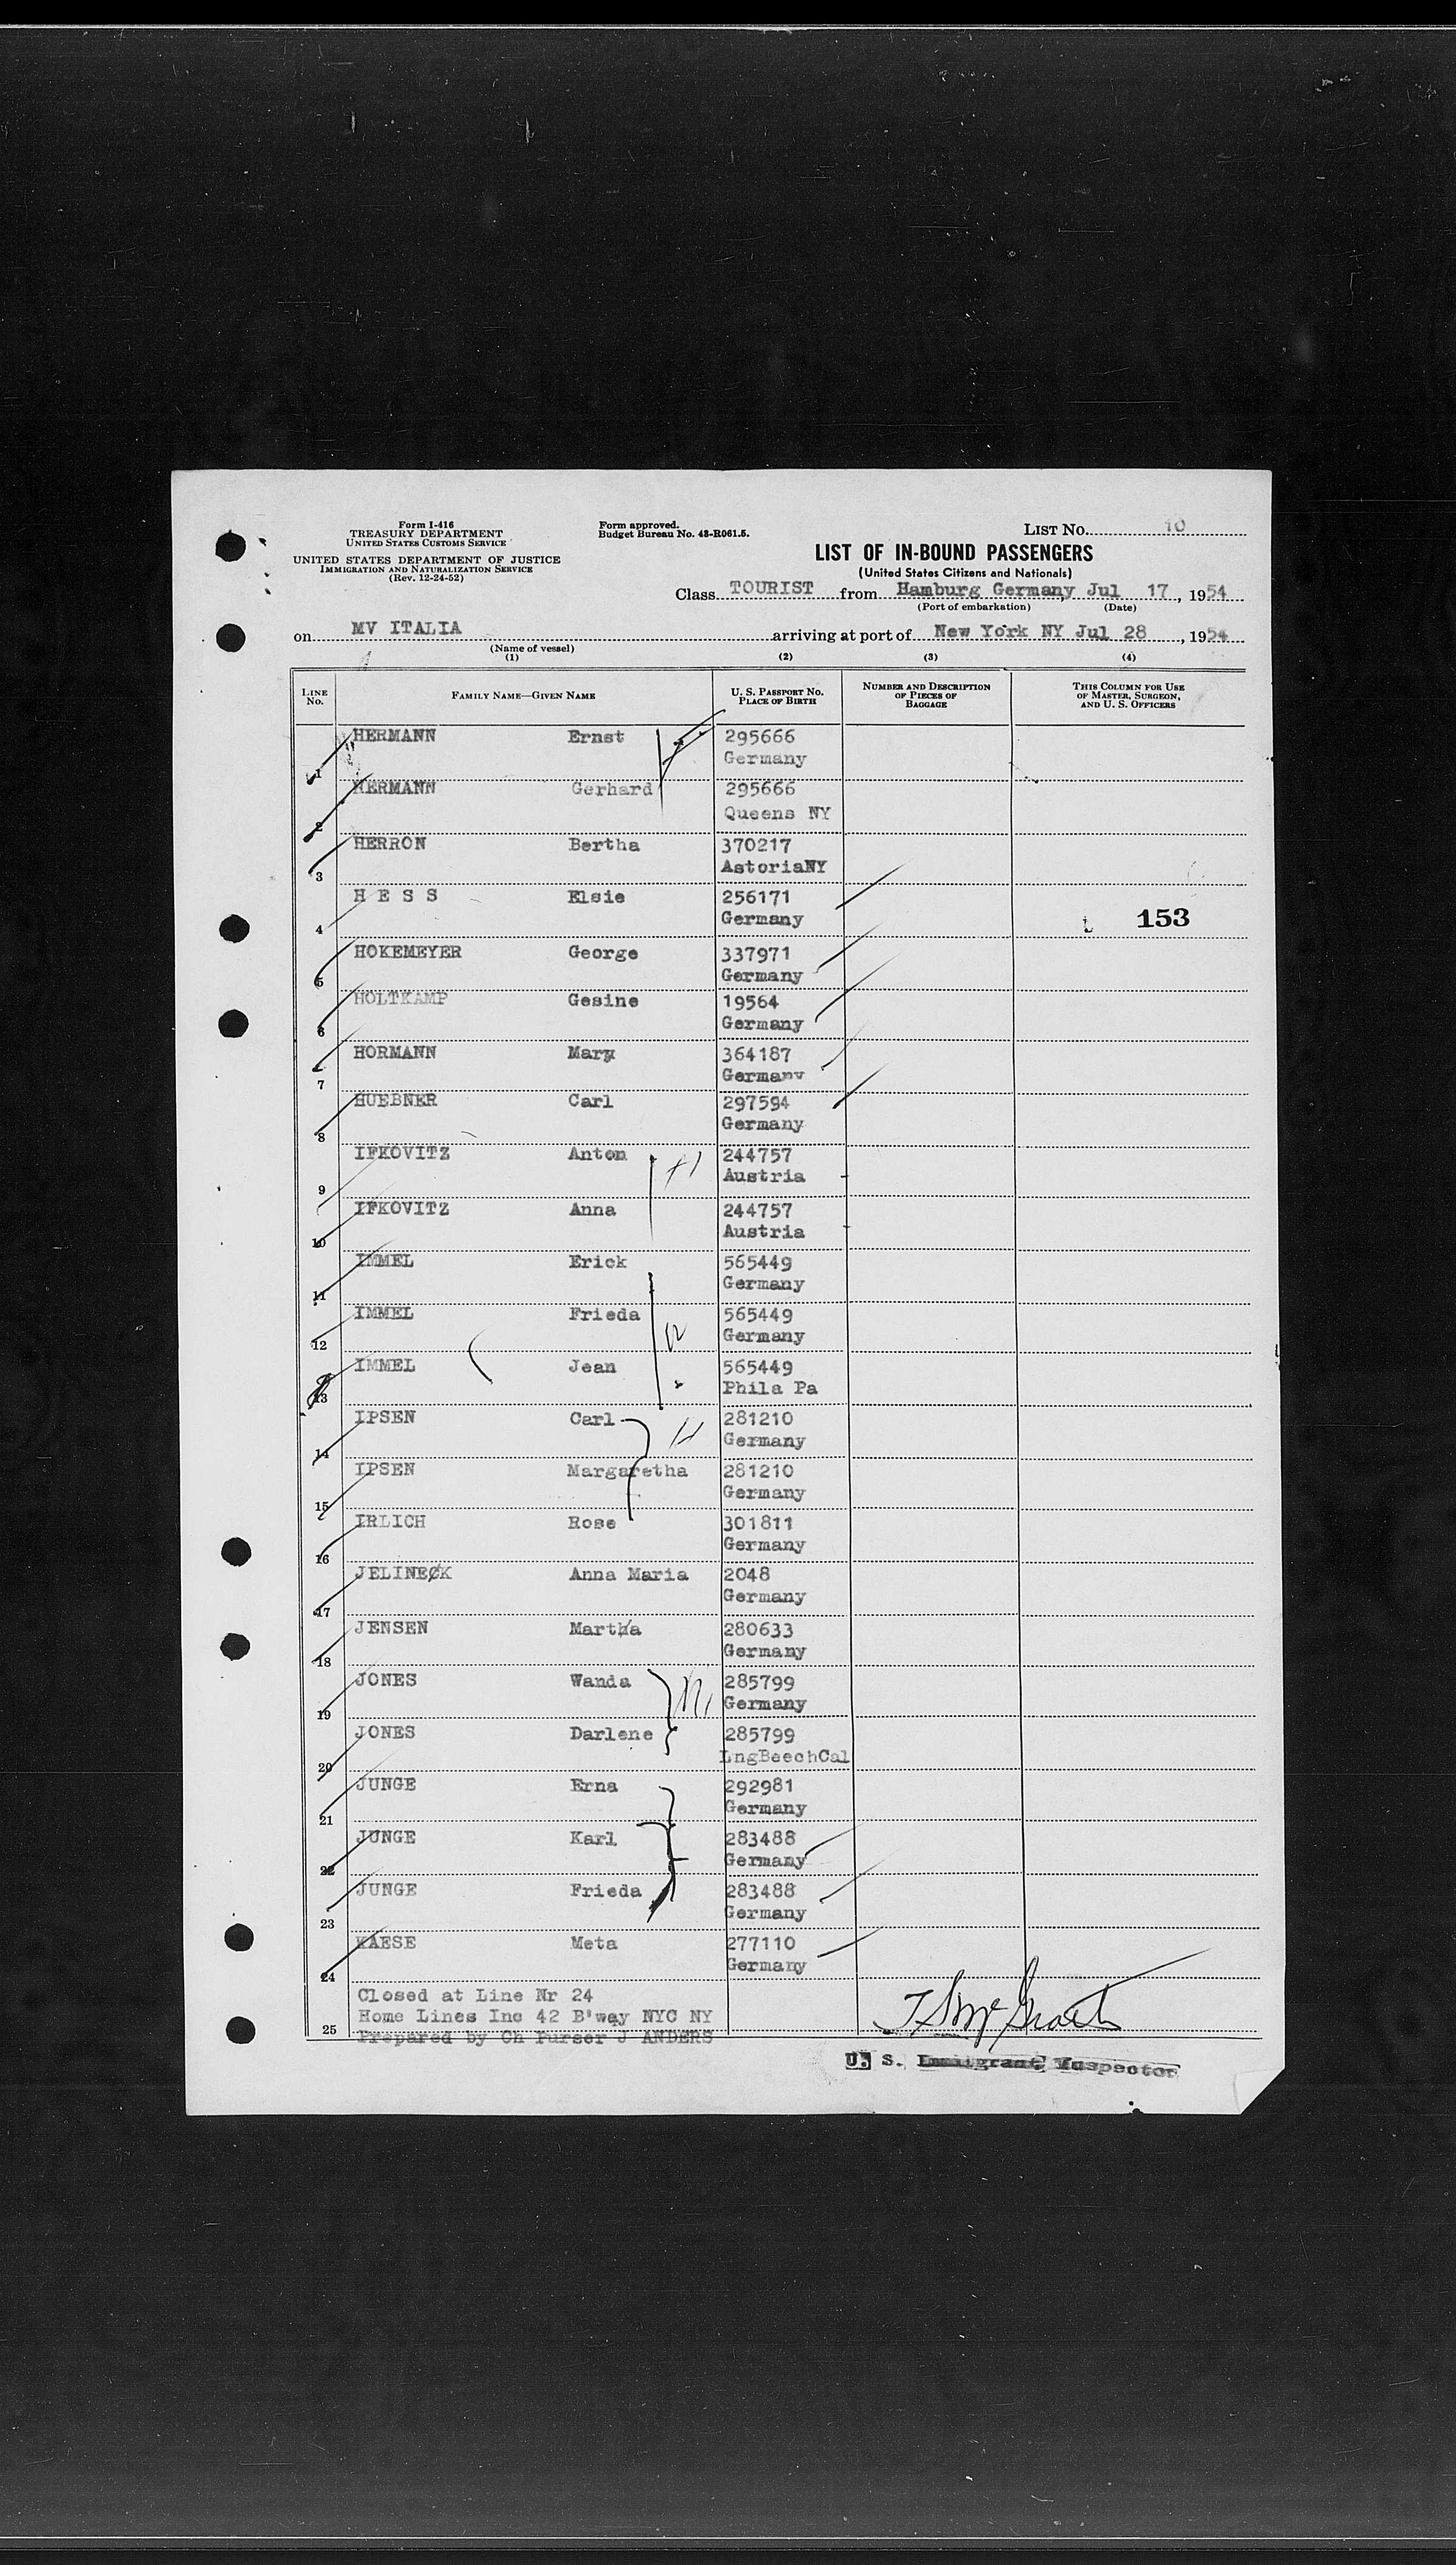 Form I-416
TREASURY DEPARTMENT
UNITED STATES CUSTOMS SERVICE
UNITED STATES DEPARTMENT OF JUSTICE
IMMIGRATION AND NATURALIZATION SERVICE
(Rev. 12-24-52)
Form approved.
Budget Bureau No. 43-R061.5.
LIST NO. 10
LIST OF IN-BOUND PASSENGERS
(United States Citizens and Nationals)
Class TOURIST from Hamburg Germany, Jul 17, 1954
(Port of embarkation) (Date)
on MV ITALIA arriving at port of New York NY Jul 28, 1954
(Name of vessel)
(1) (2) (3) (4)
LINE NO. FAMILY NAME—GIVEN NAME U. S. PASSPORT NO. PLACE OF BIRTH NUMBER AND DESCRIPTION OF PIECES OF BAGGAGE THIS COLUMN FOR USE OF MASTER, SURGEON, AND U. S. OFFICERS
HERMANN Ernst 295666
1 Germany
HERMANN Gerhard 295666
2 Queens NY
HERRON Bertha 370217
3 AstoriaNY
H E S S Elsie 256171
4 Germany 153
HOKEMEYER George 337971
5 Germany
HOLTKAMP Gesine 19564
6 Germany
HORMANN Mary 364187
7 Germany
HUEBNER Carl 297594
8 Germany
IFKOVITZ Anton 244757
9 Austria
IFKOVITZ Anna 244757
10 Austria
IMMEL Erick 565449
11 Germany
IMMEL Frieda 565449
12 Germany
IMMEL Jean 565449
13 Phila Pa
IPSEN Carl 281210
14 Germany
IPSEN Margaretha 281210
15 Germany
IRLICH Rose 301811
16 Germany
JELINECK Anna Maria 2048
17 Germany
JENSEN Martha 280633
18 Germany
JONES Wanda 285799
19 Germany
JONES Darlene 285799
20 LngBeechCal
JUNGE Erna 292981
21 Germany
JUNGE Karl 283488
22 Germany
JUNGE Frieda 283488
23 Germany
KAESE Meta 277110
24 Germany
Closed at Line Nr 24
Home Lines Inc 42 B'way NYC NY
25 Prepared by Ch Purser J ANDERS
U. S. Immigrant Inspector